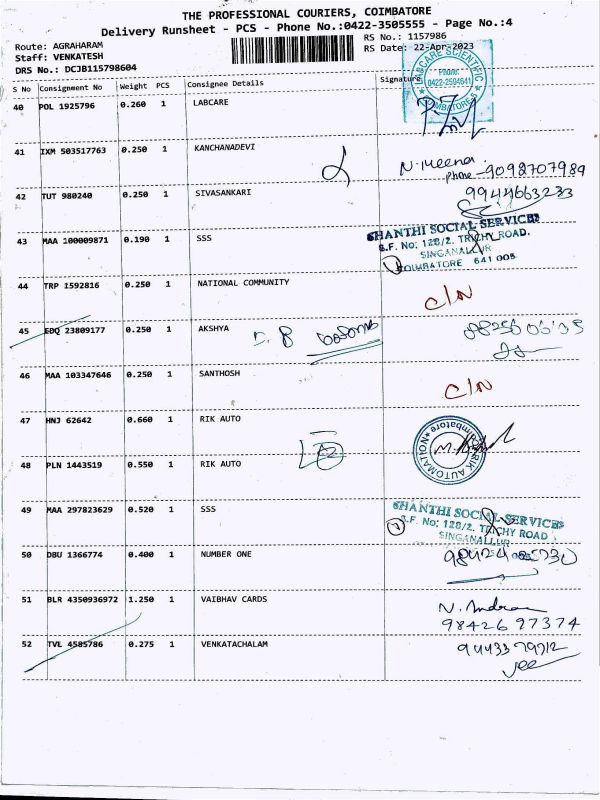 THE PROFESSIONAL COURIERS, COIMBATORE
Delivery Runsheet - PCS - Phone No.:0422-3505555 - Page No.:4
Route: AGRAHARAM
Staff: VENKATESH
DRS No.: DCJB115798604
RS No.: 1157986
RS Date: 22-Apr-2023
S No Consignment No Weight PCS Consignee Details Signature
LABCARE SCIENTIFIC
Phone:
0422-2594641
COIMBATORE
40 POL 1925796 0.260 1 LABCARE
41 IXM 503517763 0.250 1 KANCHANADEVI N. Meena
phone - 9092707989
42 TUT 980240 0.250 1 SIVASANKARI 9944663233
43 MAA 100009871 0.190 1 SSS
SHANTHI SOCIAL SERVICES
S.F. No: 128/2. TRICHY ROAD.
SINGANALLUR
COIMBATORE 641 005
44 TRP 1592816 0.250 1 NATIONAL COMMUNITY C/N
45 EDQ 23809177 0.250 1 AKSHYA
46 MAA 103347646 0.250 1 SANTHOSH C/N
47 HNJ 62642 0.660 1 RIK AUTO
RIK AUTOMATION
Coimbatore
48 PLN 1443519 0.550 1 RIK AUTO
49 MAA 297823629 0.520 1 SSS
SHANTHI SOCIAL SERVICES
S.F. No: 128/2. TRICHY ROAD
SINGANALLUR
50 DBU 1366774 0.400 1 NUMBER ONE
51 BLR 4350936972 1.250 1 VAIBHAV CARDS
98426 97374
52 TVL 4585786 0.275 1 VENKATACHALAM